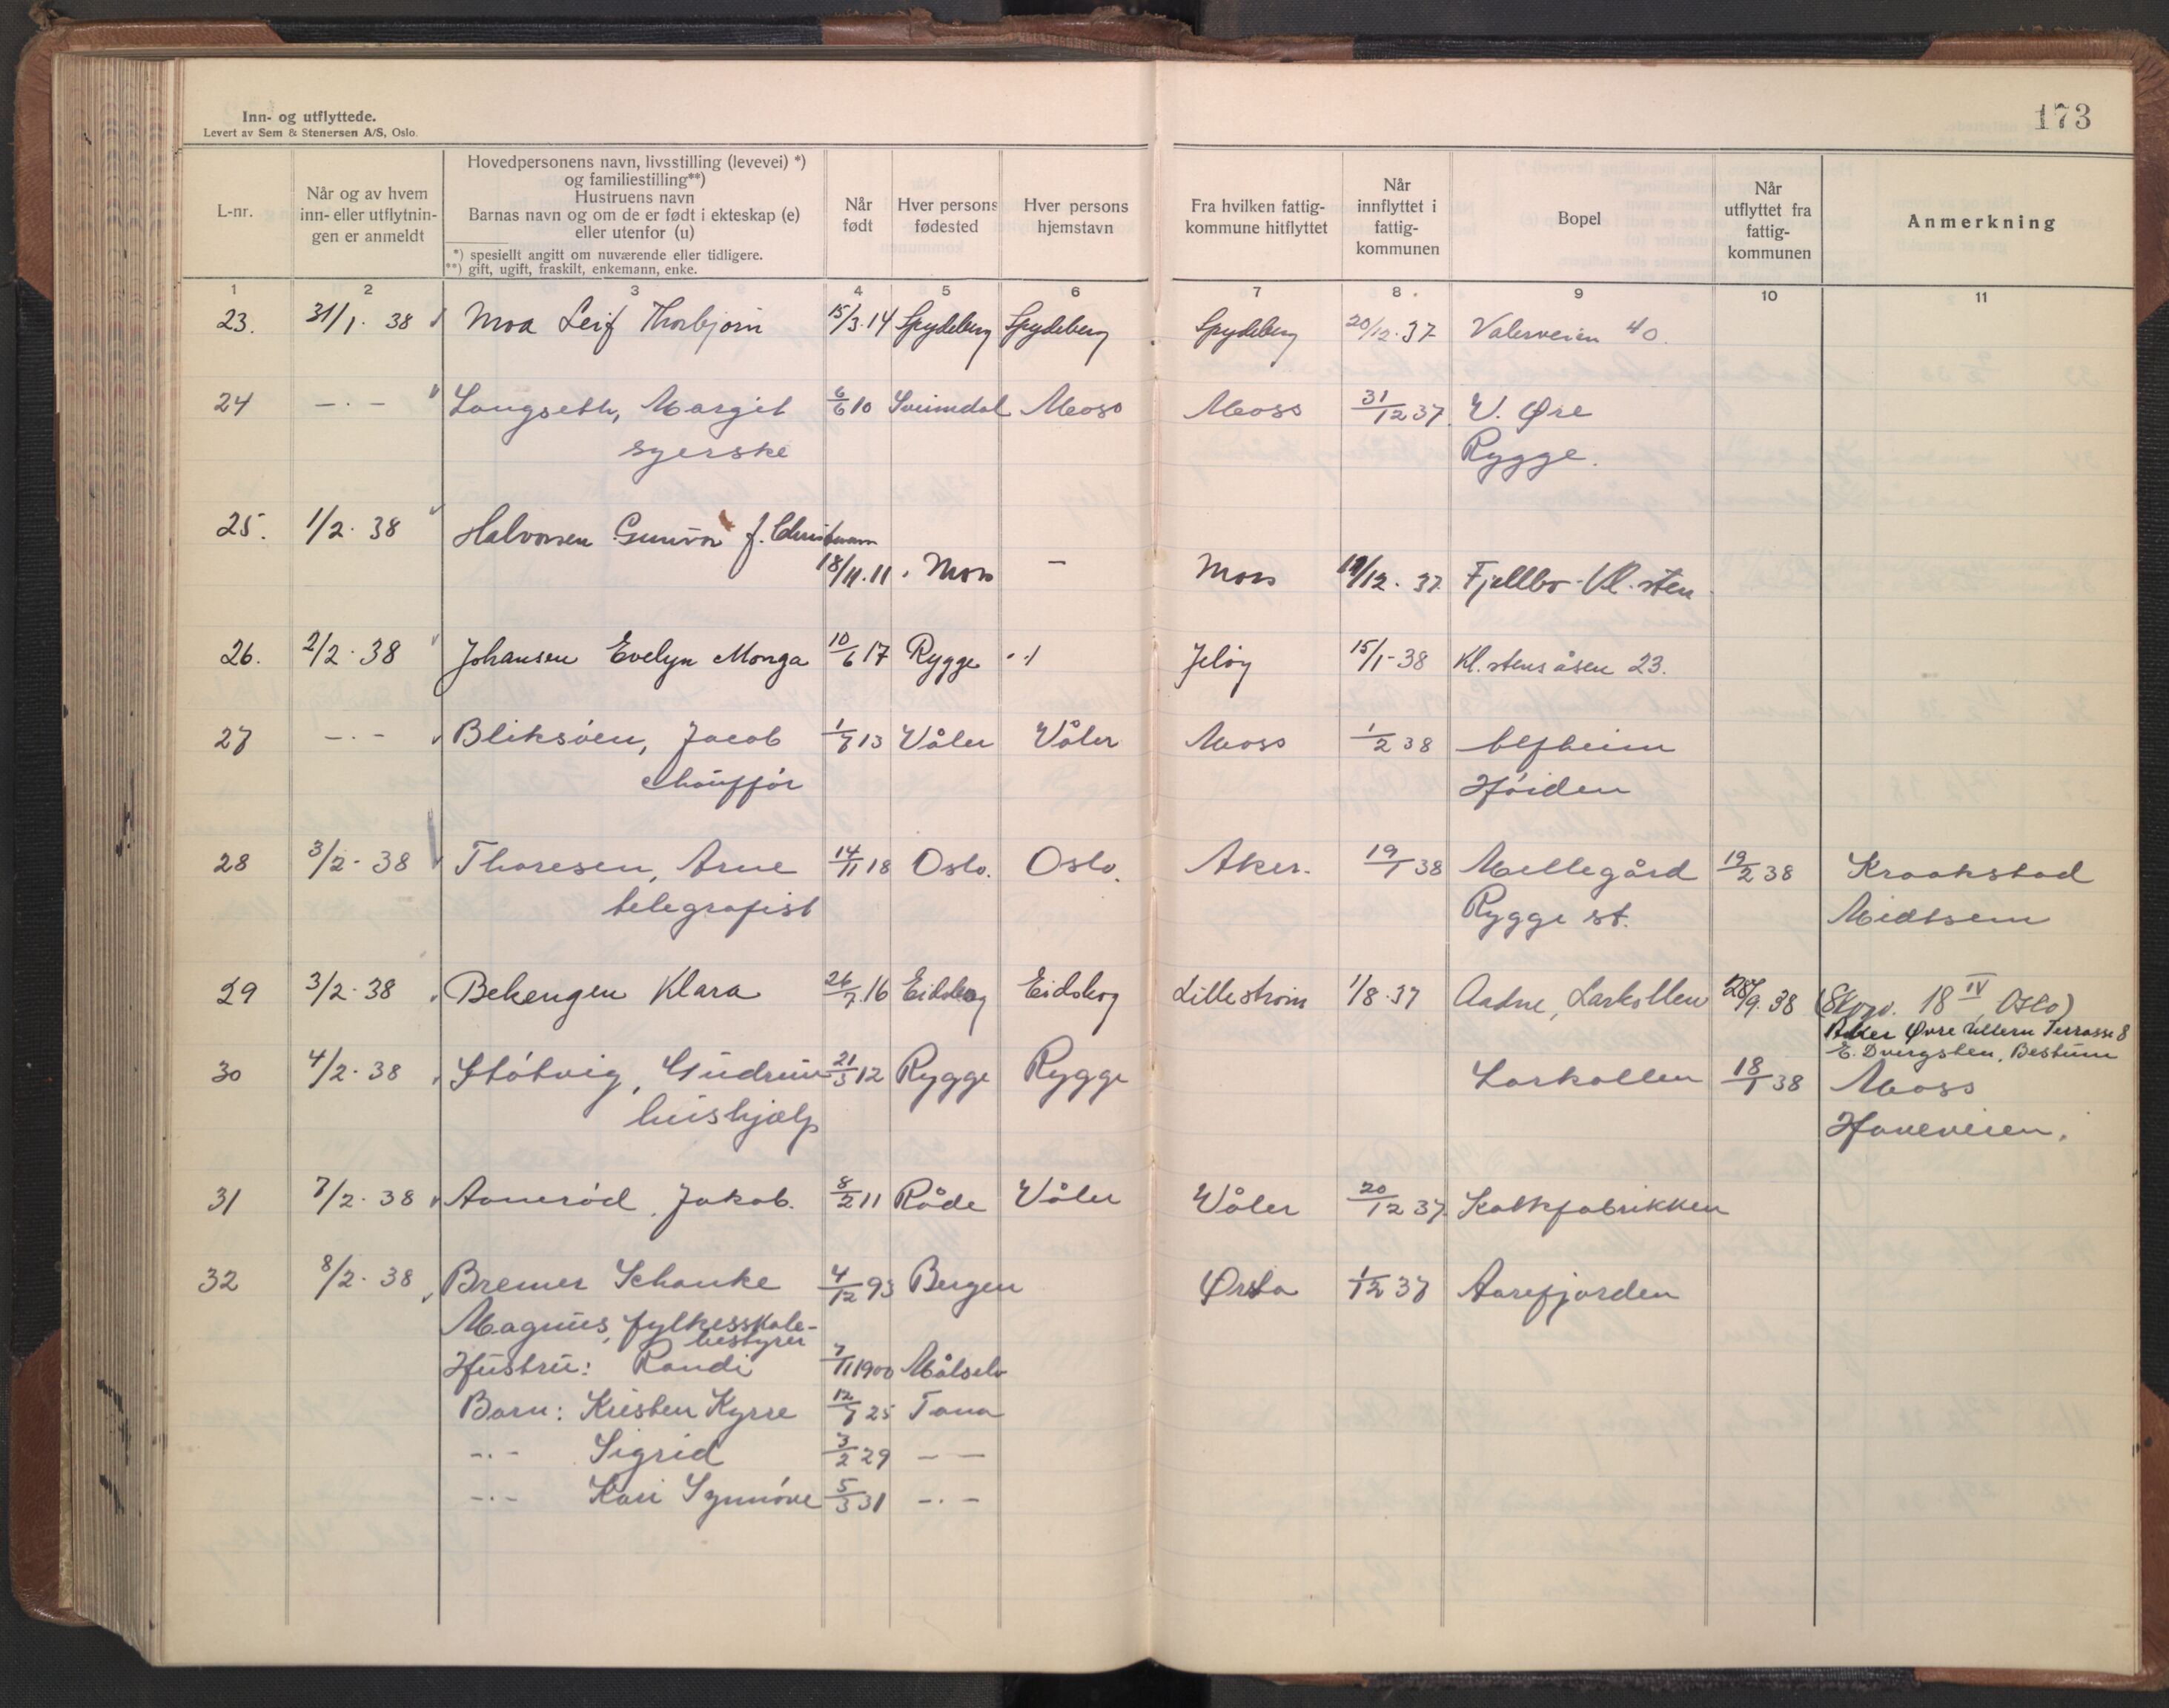 Inn- og utflyttede.
Levert av Sem & Stenersen A/S, Oslo.
173
L-nr.
Når og av hvem inn- eller utflytnin- gen er anmeldt
Hovedpersonens navn, livsstilling (levevei) *)
og familiestilling**)
Hustruens navn
Barnas navn og om de er født i ekteskap (e)
eller utenfor (u)
*) spesiellt angitt om nuværende eller tidligere.
**) gift, ugift, fraskilt, enkemann, enke.
Når født
Hver persons fødested
Hver persons hjemstavn
Fra hvilken fattig- kommune hitflyttet
Når innflyttet i fattig- kommunen
Bopel
Når utflyttet fra fattig- kommunen
Anmerkning
1 2 3 4 5 6 7 8 9 10 11
23. 31/1. 38 Moa Leif Thorbjørn 15/3.14 Spydeberg Spydeberg Spydeberg 20/12.37 Valerveien 40.
24 -.- Langseth, Margit 6/6 10 Svinndal Moss Moss 31/12 37. V. Øre
syerske Rygge.
25. 1/2. 38 Halvorsen Gunvor f. Christensen
18/11.11. Moss - Moss 12. 37. Fjellbo - Kl. sten
26. 2/2. 38 Johansen Evelyn Monga 10/6 17 Rygge Jeløy 15/1-38 Kl. stensåsen 23.
27 -.- Bliksøen, Jacob 13 Våler Våler Moss 1/2 38 Alfheim
chauffør Høiden
28 3/2. 38 Thoresen, Arne 14/11 18 Oslo. Oslo. Aker. 19/1 38 Mellegård 19/2 38 Kraakstad
telegrafist Rygge st. Midtsem
29 3/2. 38 Bekengen Klara 26/7.16 Eidskog Eidskog Lillestrøm 1/8.37 Aadne, Larkollen 9. 38 (Skogv. 18 IV, Oslo)
Aker Øvre Ullern Terrasse 8
E. Dvergsten, Bestum
30 4/2. 38 Støtvig, Gudrun 21/3 12 Rygge Rygge Larkollen 18/1 38 Moss
hushjælp Haveveien.
31 7/2. 38 Aamerød, Jakob. 8/2 11 Råde Våler Våler 20/12 37. Kalkfabrikken
32 8/2. 38 Bremer Schanke 4/12 93 Bergen Ørsta 1/12 37 Aarefjorden
Magnus, fylkesskole-
bestyrer
Hustru: Randi 7/11 1900 Målselv
Barn: Kristen Kyrre 12/7 25 Tana
-.- Sigrid 3/2 29 - -
-.- Kari Synnøve 5/3 31 -.-